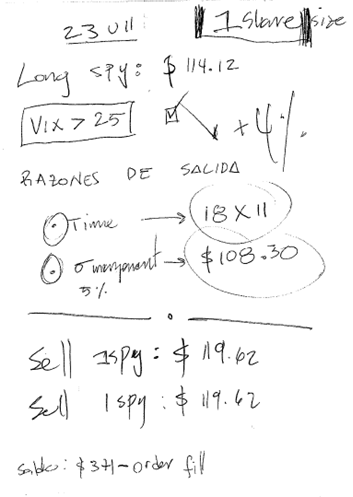 1 Share size
23 V 11
Long SPY: $ 114.12
VIX > 25 + 4%
RAZONES DE SALIDA
Time → 18 X 11
→ $108.30
5%
Sell 1 spy: $ 119.62
Sell 1 spy: $ 119.62
order fill